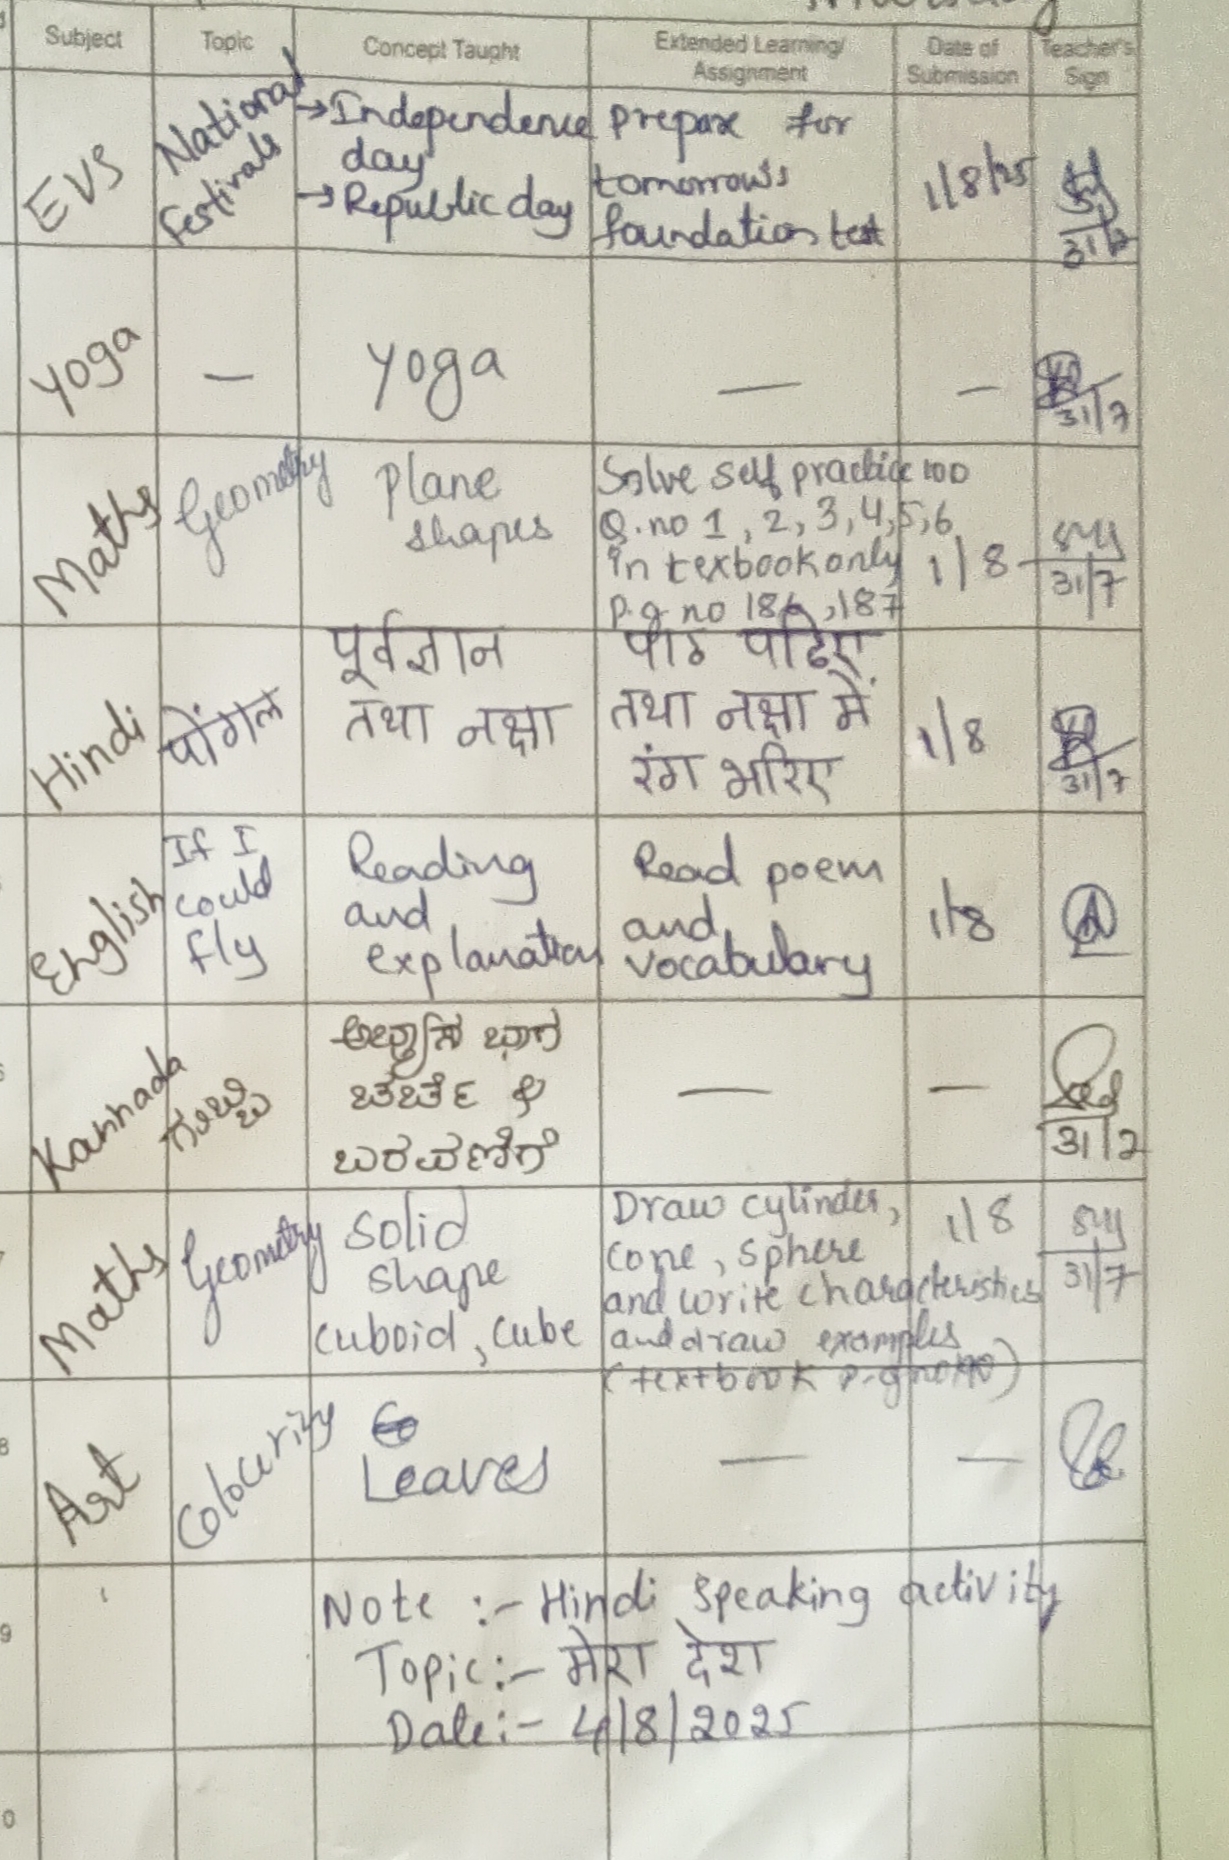 Subject Topic Concept Taught Extended Learning/ Assignment Date of Submission Teacher's Sign
EVS
National
festivals
→ Independence
day
→ Republic day
prepare for
tomorrow's
foundation test
1/8/25
31/7
Yoga
—
Yoga
—
—
31/7
Maths
Geometry
plane
shapes
Solve self practice 10D
Q.no 1, 2, 3, 4, 5, 6
in texbook only
p.g no 186, 187
1/8
31/7
Hindi
पोंगल
पूर्वज्ञान
तथा नक्षा
पाठ पढिए
तथा नक्षा में
रंग भरिए
1/8
31/7
English
If I
could
fly
Reading
and
explanation
Read poem
and
vocabulary
1/8
Kannada
ಗುಬ್ಬಿ
ಅಭ್ಯಾಸ ಭಾಗ
ಚರ್ಚೆ &
ಬರವಣಿಗೆ
—
—
31/7
Maths
Geometry
Solid
shape
cuboid, cube
Draw cylinder,
cone, sphere
and write characteristics
and draw examples
(textbook p.g no 190)
1/8
31/7
8
Art
Colouring
Leaves
—
—
9
Note :- Hindi speaking activity
Topic:- मेरा देश
Date:- 4/8/2025